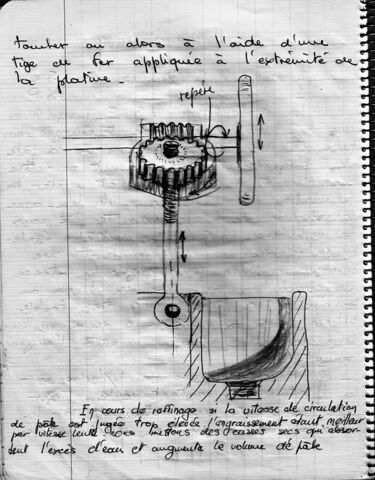 toucher ou alors à l'aide d'une
tige en fer appliquée à l'extrémité de
la platine.
repère
En cours de raffinage si la vitesse de circulation
de pâte est jugée trop élevée, l'engraissement étant meilleur
par vitesse lente, nous mettons des cassés secs qui absor-
bent l'excès d'eau et augmente le volume de pâte